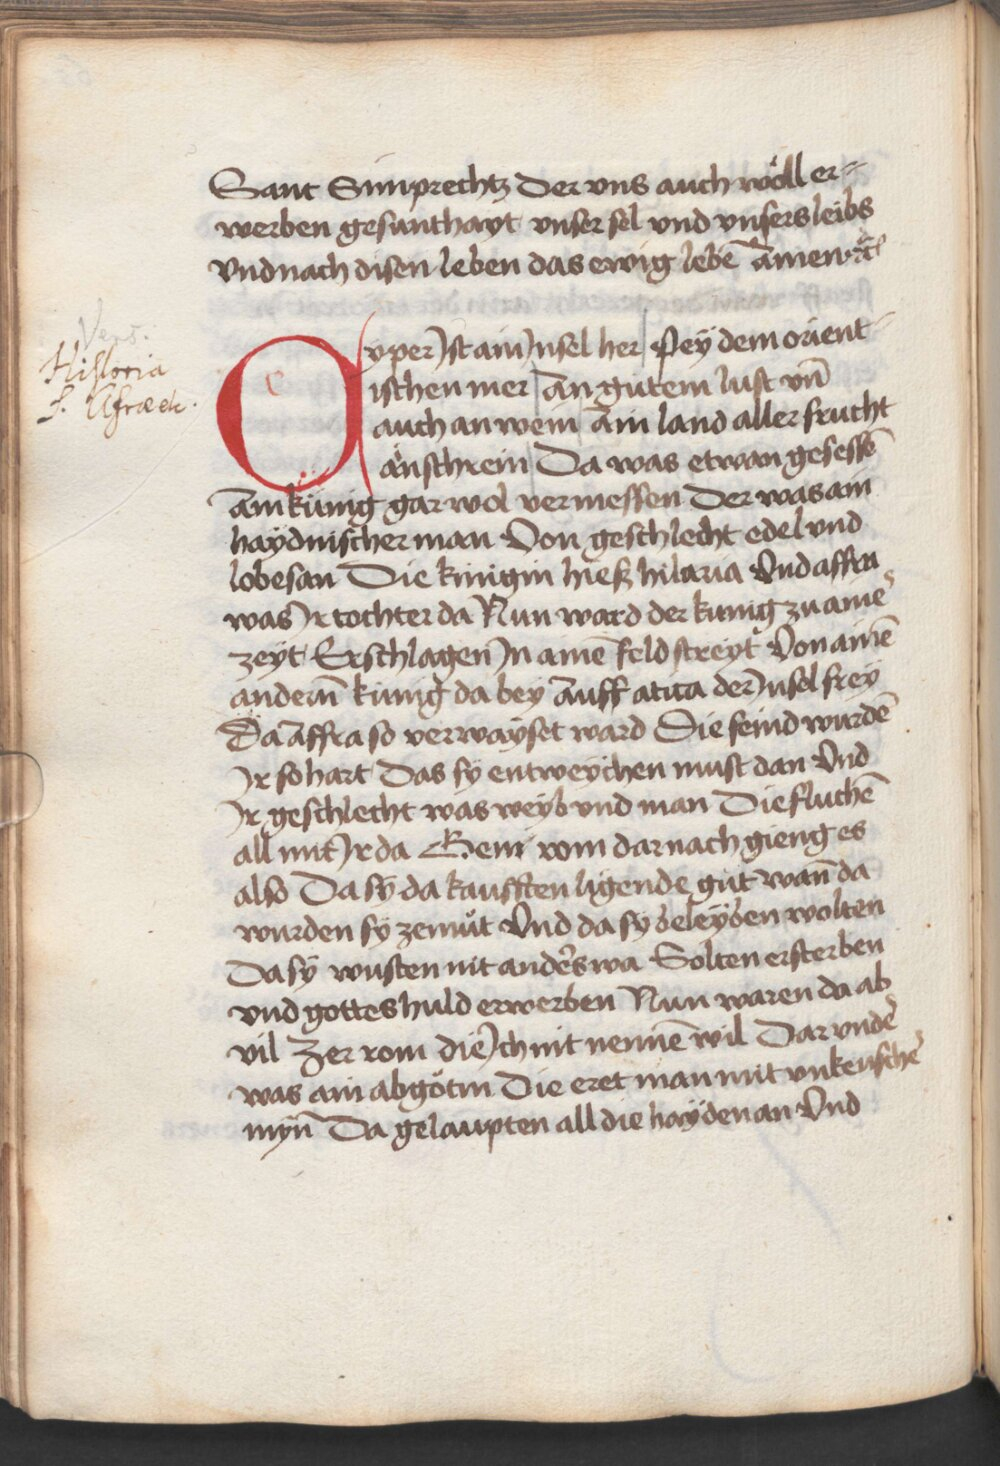 Sant Simprechtz Der vns auch wöll er=
werben gesunthayt vnser sel vnd vnsers leibs
Vnd nach disen leben das ewig lebē Amen
Vers.
Historia
S. Afrae etc.
Cyper Jst ain Jnsel her Pey dem orient=
ischen mer An gutem lust vn̄
auch an wein Ain land aller frucht
ain schrein Da was etwan gesessē
Ain künig gar wol vermessen Der was ain
haydnischer man Von geschlecht edel vnd
lobesan Die künigin hieß hilaria Vnd affra
was Jr tochter da Nun ward der kunig zu aine
zeyt Erschlagen Jn ainē feld streyt Von ainē
anderm̄ künig da bey Auff atica der Jnsel frey
Da Affra so verwayset ward Die feind wurdē
Jr so hart Das sy entweychen must dan Vnd
Jr geschlecht was weyb vnd man Die fluchē
all mit Jr da Gem̄ rom darnach gieng es
also Da sÿ da kaufften ligende gut wan̄ da
wurden sy zemůt Vnd da sy beleyben wolten
Da sÿ wusten nit anders wa Solten ersterben
vnd gottes huld erwerben Nun waren da ab
vil Zer rom die Jch nit nennē wil Dar vnder
was ain abgötin Die eret man mit vnkeuscher
myn̄ Da gelaupten all die hayden an Vnd